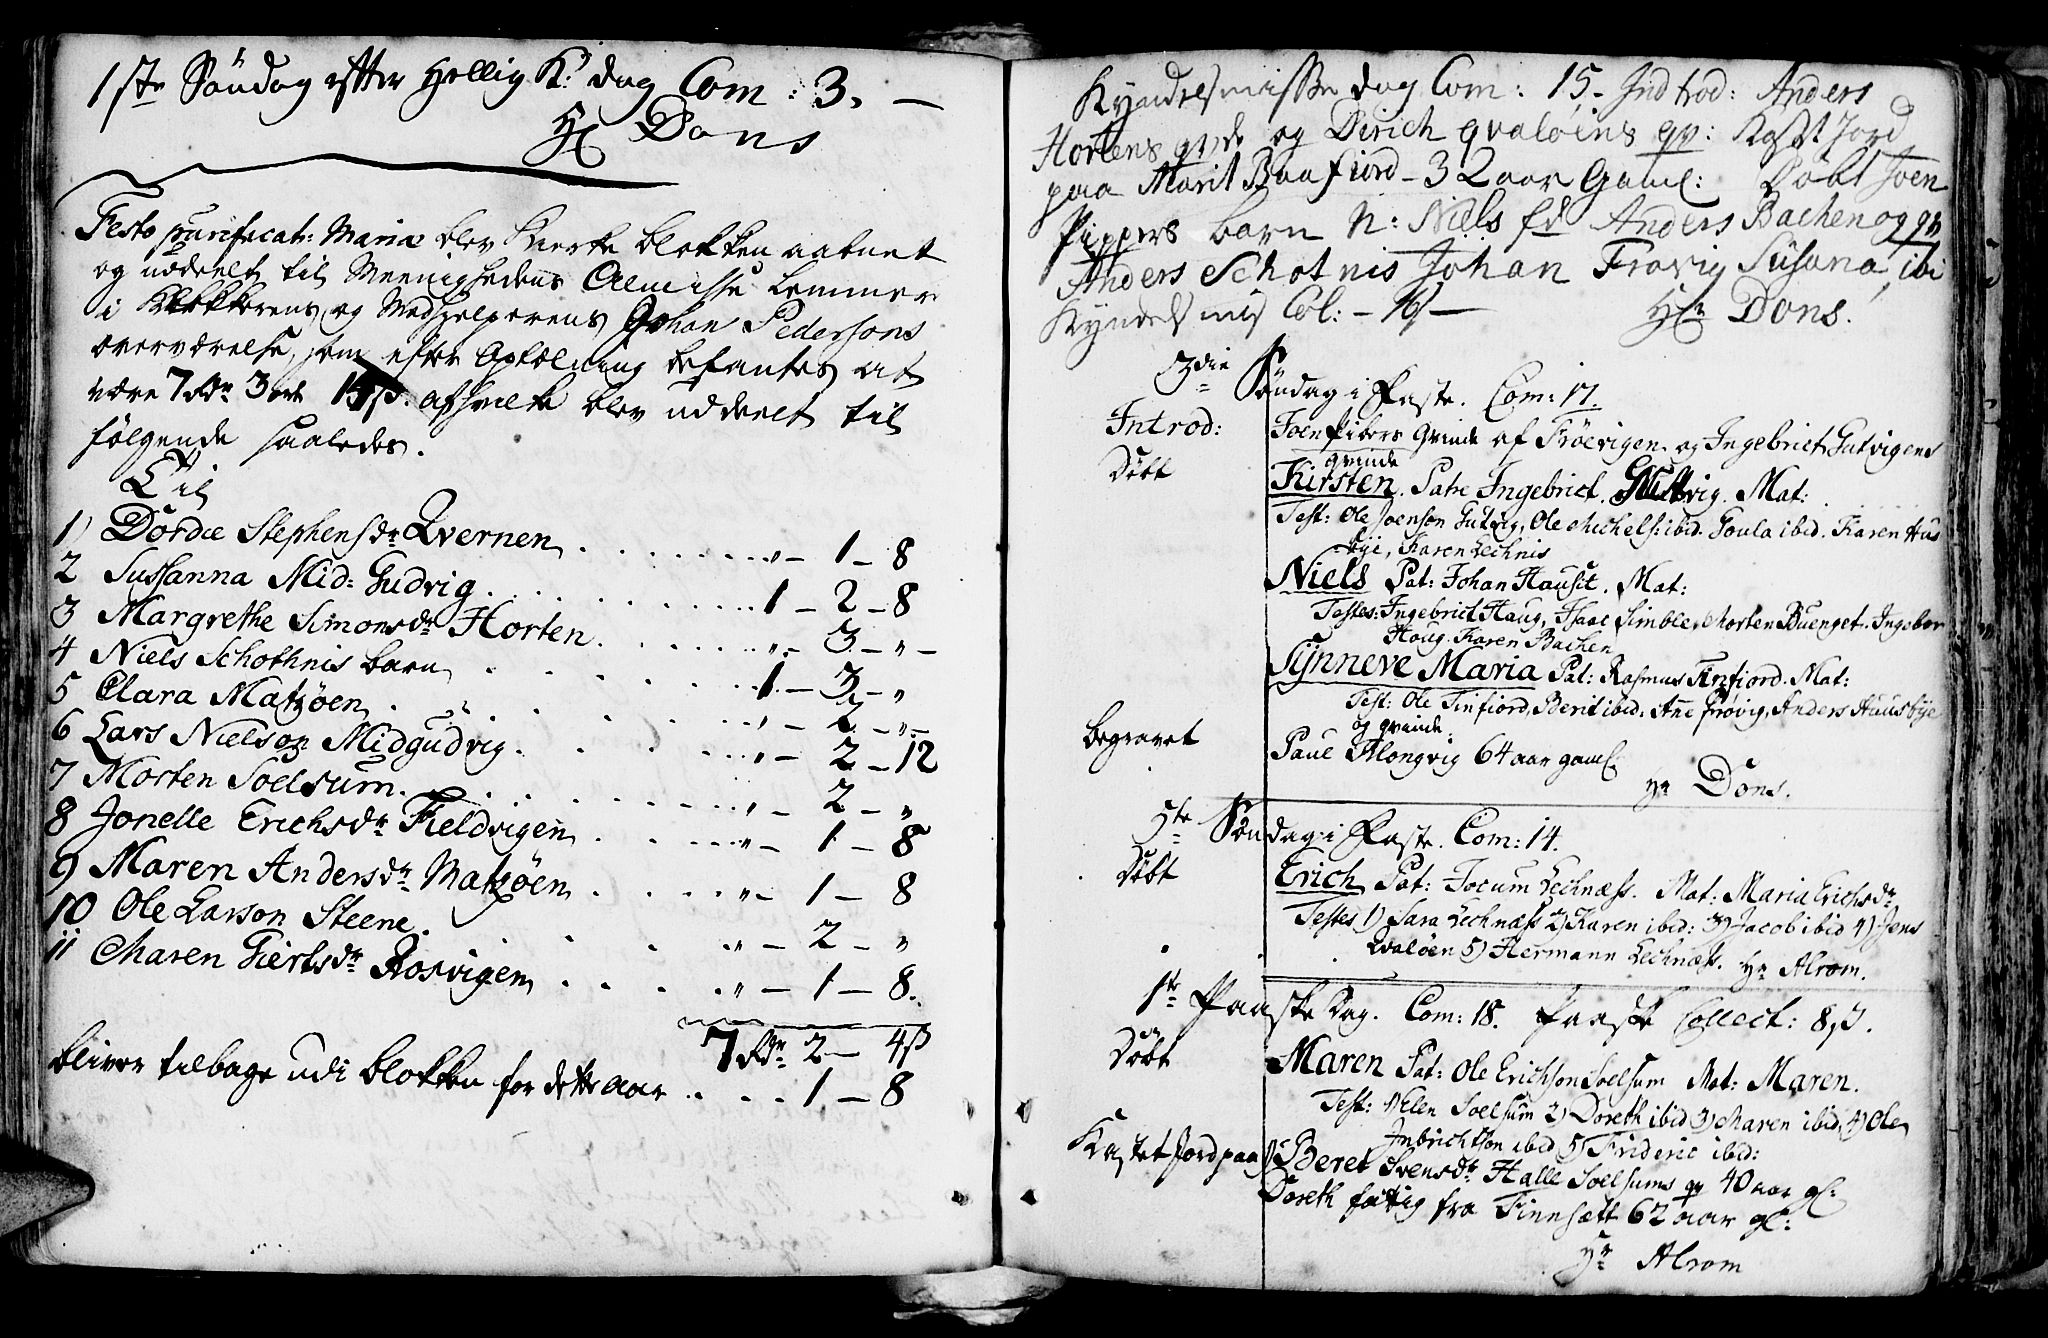 1ste Söndag efter Hellig K: dag Com: 3. —
Hr Dons
Festo purificat: Mariæ blev Kierke blokken aabnet
og uddeelt til Meenighedens Almisse Lemmer
i Klokkerens og Medhielperens Johan Pedersøns
overværelse, som efter Optælning befantes at
være 7 Rdr 3 ort 1 ß. afhvilke blev uddeelt til
følgende saaledes.
Til
1) Dordæ Stephensdr Qvernen . . . . . . " — 1 — 8
2 Sussanna Mid: Gudvig . . . . . . 1 — 2 — 8
3 Margrethe Simonsdr Horten . . . . . . " — 3 — " —
4 Niels Schothnis barn . . . . . . 1 — 3 — "
5 Clara Matzøen . . . . . . " — 2 — " —
6 Lars Nielson Midgudvig . . . . . . " — 2 — 12
7 Morten Soelsum . . . . . . " — 2 — "
8 Jonelle Erichsdr Fieldvigen . . . . . . " — 1 — 8
9 Maren Andersdr Matzøen . . . . . . " — 1 — 8
10 Ole Larson Steene . . . . . . " — 2 — "
11 Maren Giertsdr Rosvigen . . . . . . " — 1 — 8.
7 Rdr 2 — 4ß
bliver tilbage udi blokken for dette aar . . . . 1 — 8
Kyndelsmisse dag Com: 15. Introd: Anders
Hortens qvde og Dirich qvaløins qv: Kast Jord
paa Marit Baafiord — 32 aar Gaml: Döbt Joen
Pippers barn N: Niels fd Anders Bachen og qv
Anders Schotnis Johan Frøvig Susana ibi
Kyndelsmis Col: — —
Hr Dons.
3die Söndag i Faste. Com: 17.
Introd: Joen Pibers Qvinde af Fröevigen og Ingebrict Gutvigens
qvinde
Döbt Kirsten. Patre Ingebrict. Guttvig. Mat:
Test: Ole Joenson Gutvig, Ole Michels: ibid. Goula ibid. Karen Hus
bye, Karen Lechnis
Niels Pat: Johan Hauset. Mat:
Testes: Ingebrict Haug, Isaac Simble, Morten Buenget. Ingebor
Haug. Karen Bachen
Synneve Maria Pat: Rasmus Finfiord. Mat:
Test: Ole Finfiord, Berit ibid: Ane Frovig, Anders Huusbye
og qvinde.
begravet Paul Alongvig 64 aar gaml.
Hr Dons.
5te Söndag i Faste. Com: 14.
Döbt Erich Pat: Jocum Lechnæss. Mat: Maria Erichsdr
Testes 1) Sara Lechnæss 2) Karen ibid: 3) Jacob ibid 4) Jens
Qvaløen 5) Hermann Lechnæss. Hr Alrom.
1ste Paaske Dag. Com: 18. Paaske Collect: 8ß.
Döbt Maren Pat: Ole Erichson Soelsum Mat: Maren.
Test: 1) Elen Soelsum 2) Doreth ibid 3) Maren ibid, 4) Ole
Inbrichtson ibid 5) Frideric ibid:
Kastet Jord paa Beret Svensdr Halle Soelsums qv 40 aar gl:
Doreth fattig fra Finnsætt 62 aar gl:
Hr Alrom